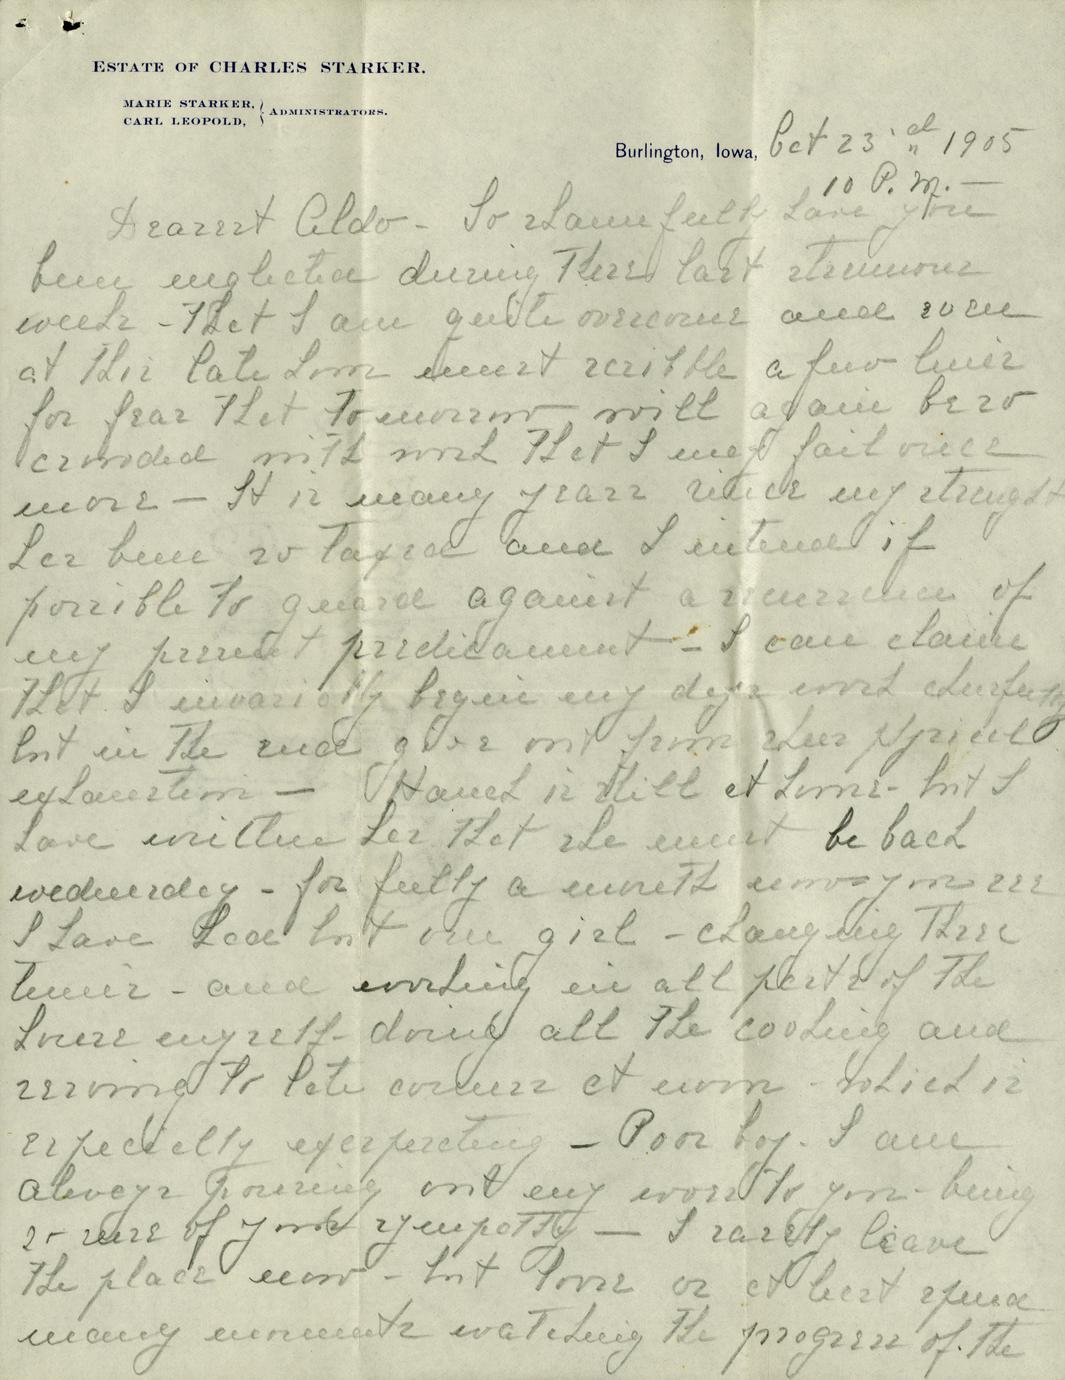 ESTATE OF CHARLES STARKER.
MARIE STARKER,
CARL LEOPOLD,
ADMINISTRATORS.
Burlington, Iowa, Oct 23rd 1905
10 P.M. —
Dearest Aldo - So shamefully have you
been neglected during these last strenuous
weeks - that I am quite overcome and even
at this late hour must scribble a few lines
for fear that tomorrow will again be so
crowded with work that I may fail once
more — It is many years since my strength
has been so taxed and I intend if
possible to guard against a recurrence of
my present predicament - I can claim
that I invariably begin my days work cheerfully
but in the end give out from sheer physical
exhaustion — is still at home - but I
have written her that she must be back
wednesday - for fully a month now you see
I have had but one girl - changing three
times - and working in all parts of the
house myself - doing all the cooking and
serving to late comers at noon - which is
especially exasperating — Poor boy - I am
always pouring out my woes to you - being
so sure of your sympathy — I rarely leave
the place now - but or at best spend
many moments watching the progress of the